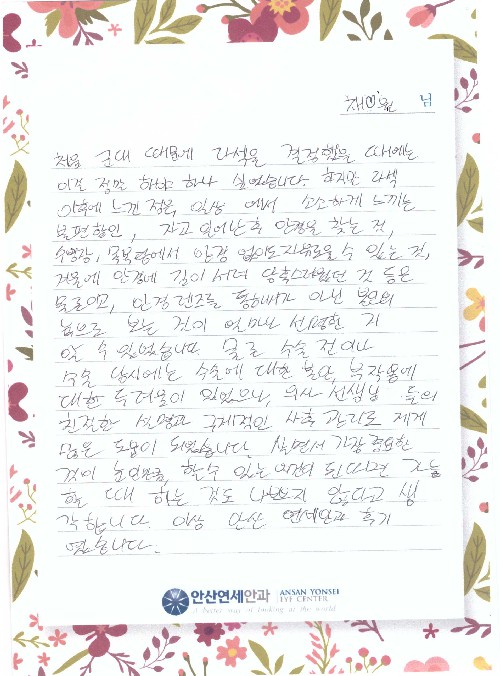 채♡원 님
처음 군대 때문에 라섹을 결정했을 때에는
이걸 정말 해야 하나 싶었습니다. 하지만 라섹
이후에 느낀 점은, 일상 에서 소소하게 느끼는
불편함인, 자고 일어난 후 안경을 찾는 것,
수영장, 목욕탕에서 안경 없이도 자유로울 수 있는 것,
겨울에 안경에 김이 서려 당혹스러웠던 것 등은
물론이고, 안경 렌즈를 통해서가 아닌 본인의
눈으로 보는 것이 얼마나 선명한 지
알 수 있었습니다. 물론 수술 전이나
수술 당시에는 수술에 대한 불안, 부작용에
대한 두려움이 있었으나, 의사 선생님 들의
친절한 설명과 구체적인 사후 관리로 제게
많은 도움이 되었습니다. 살면서 가장 중요한
것이 눈인만큼, 할 수 있는 여건이 된다면 가능
할 때 하는 것도 나쁘지 않다고 생
각합니다. 이상 안산 연세안과 후기
였습니다.
안산연세안과 ANSAN YONSEI
EYE CENTER
A better way of looking at the world